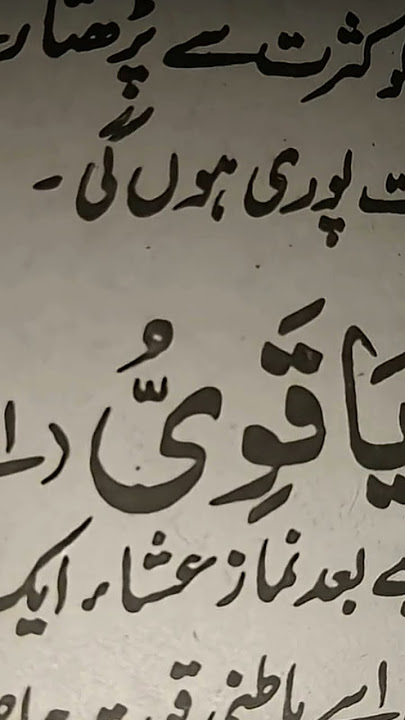 کثرت سے پڑھتا
پوری ہوں گی ۔
یَا قَوِیُّ (
بعد نماز عشاء ایک
باطنی قوت